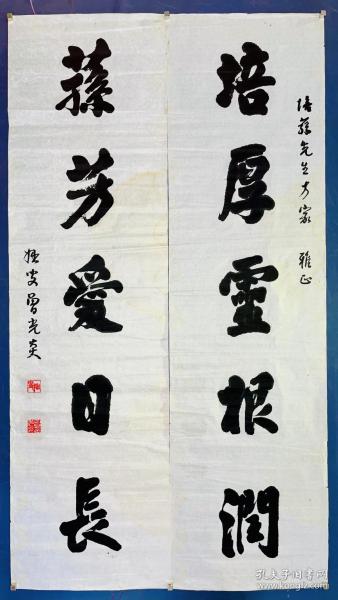 培蓀先生方家 雅正
培厚靈根潤
蓀芳愛日長
曾光炎
孔夫子旧书网